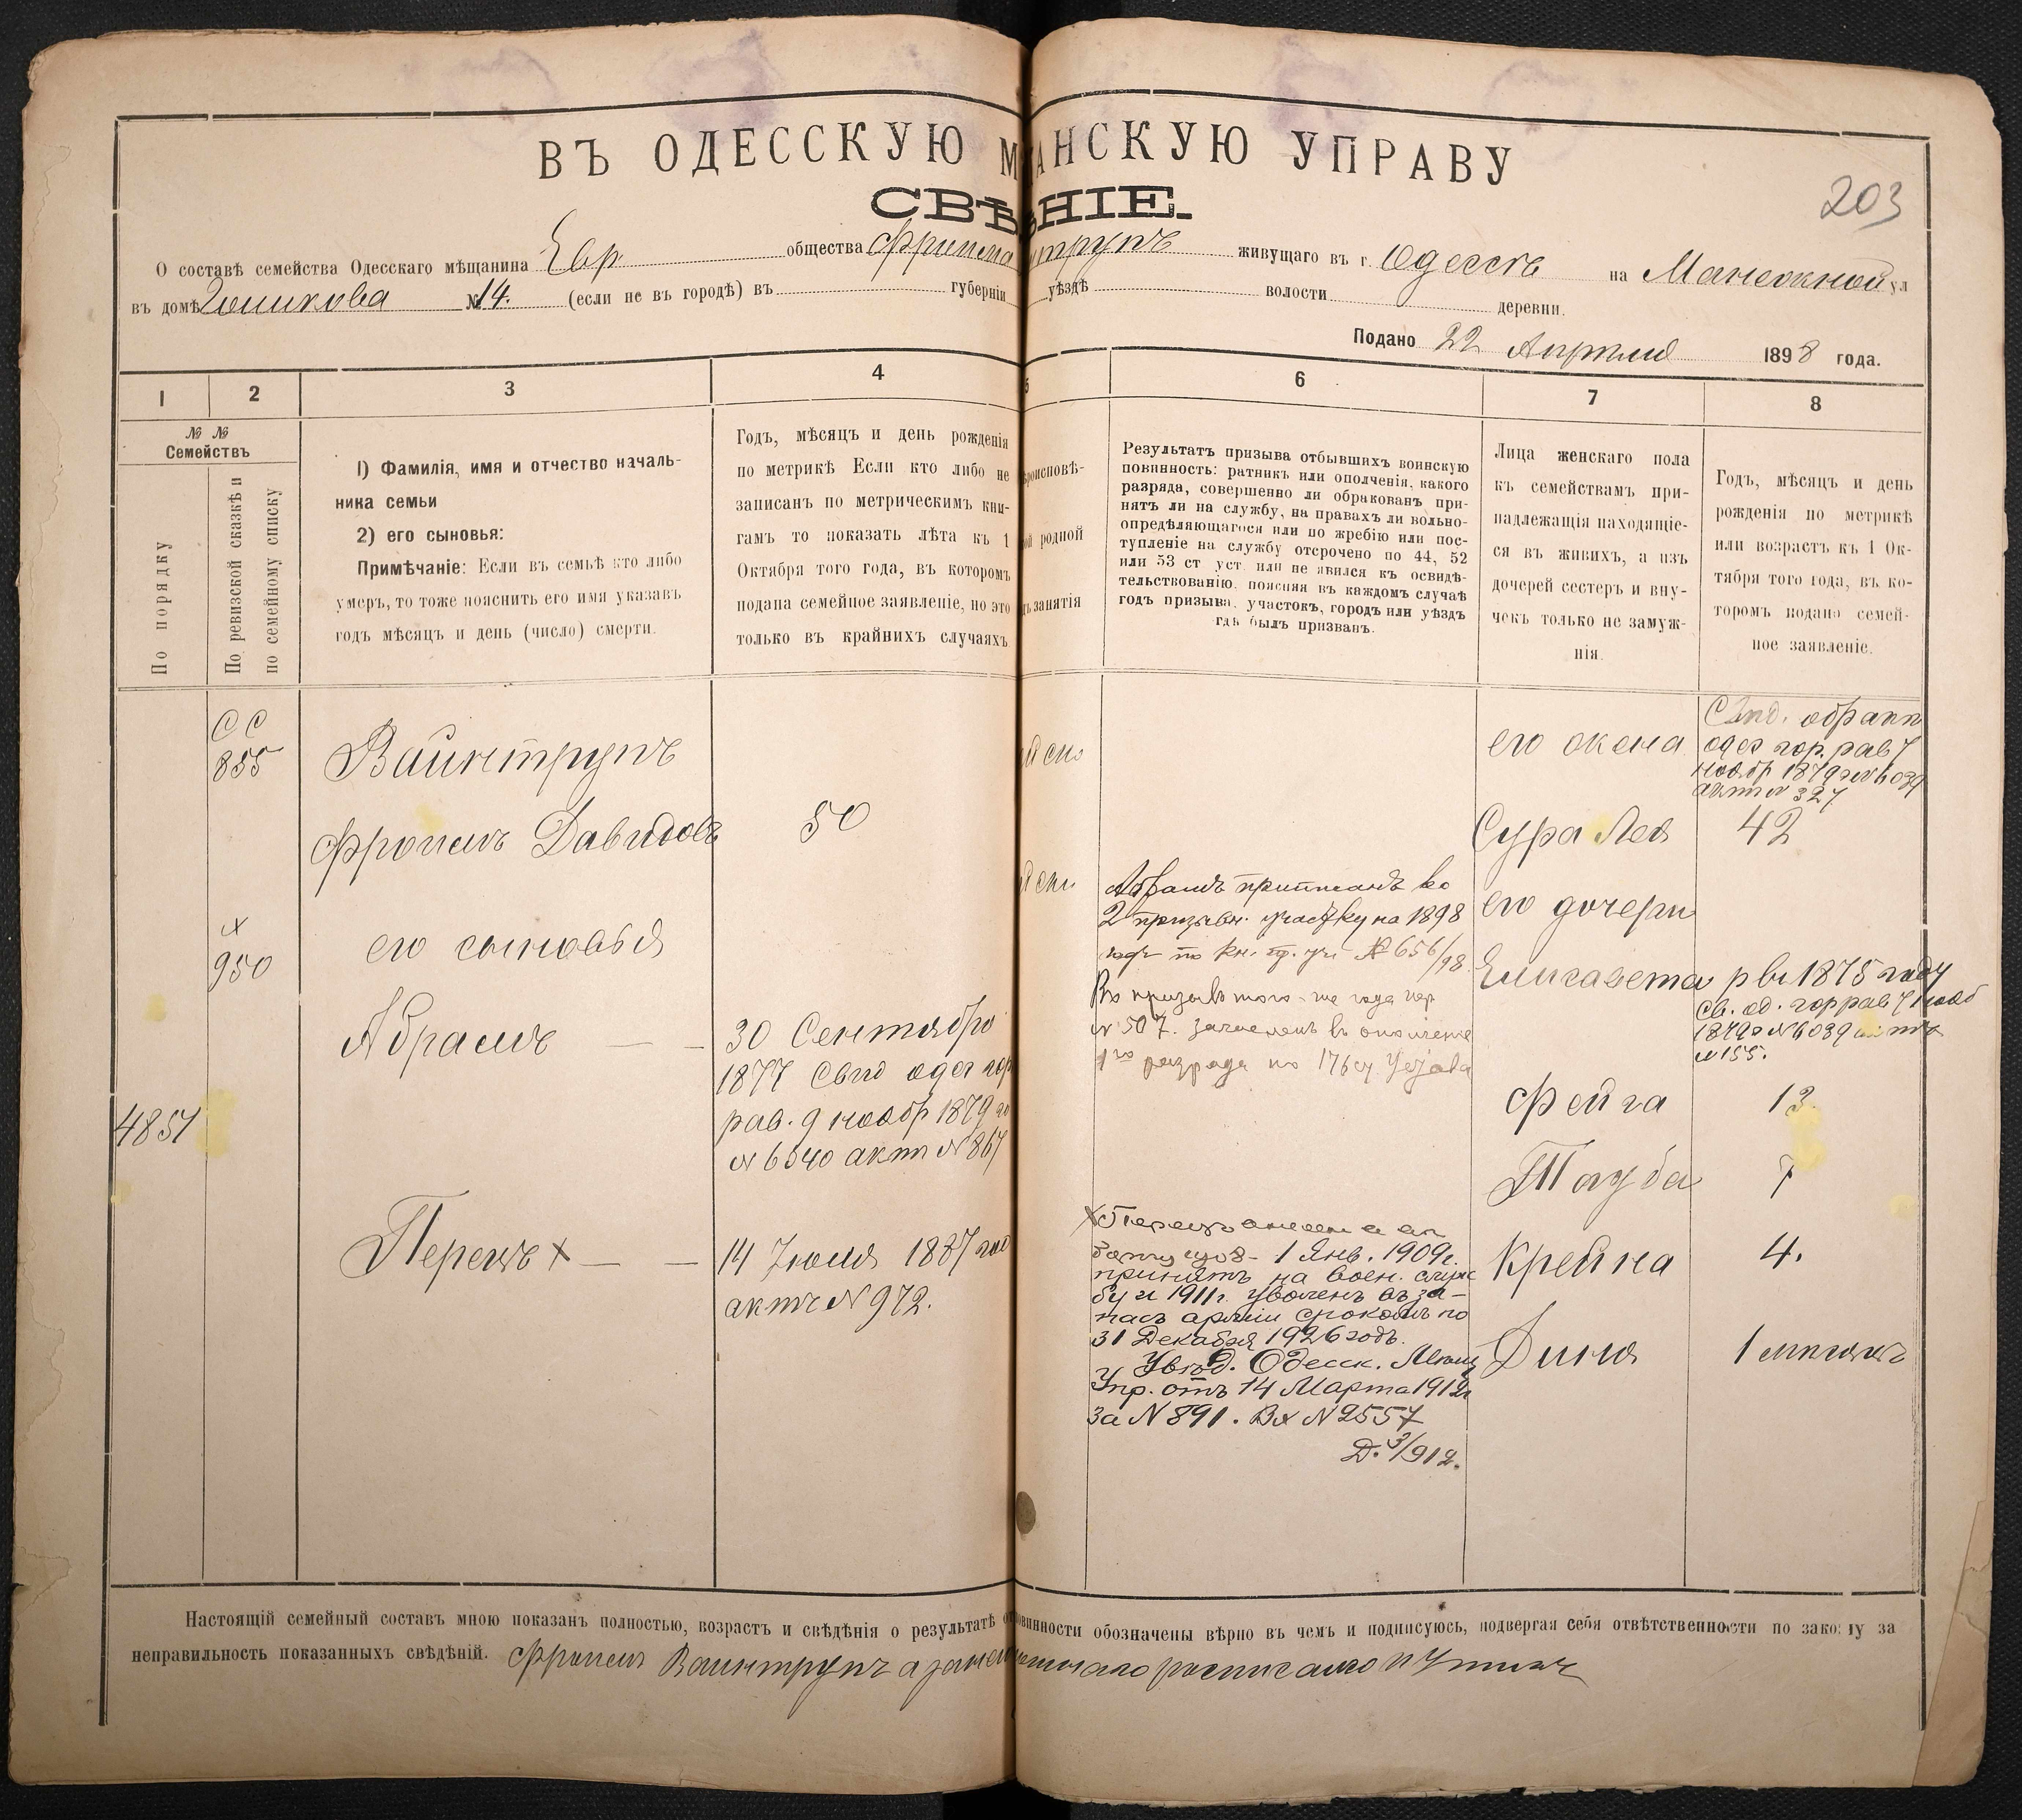 203
ВЪ ОДЕССКУЮ М АНСКУЮ УПРАВУ
СВѢ НІЕ.
О составѣ семейства Одесскаго мѣщанина Евр общества Живущаго въ г. Одессѣ на Манежной ул
въ домѣ №14. (если не въ городѣ) въ губерніи уѣздѣ волости деревни.
Подано 22 Апреля 1898 года.
1 2 3 4 5 6 7 8
№ №
Семействъ
По порядку
По ревизской сказкѣ и
по семейному списку
1) Фамилія, имя и отчество началь-
ника семьи
2) его сыновья:
Примѣчаніе: Если въ семьѣ кто либо
умеръ, то тоже пояснить его имя указавъ
годъ мѣсяцъ и день (число) смерти.
Годъ, мѣсяцъ и день рожденія
по метрикѣ Если кто либо не
записанъ по метрическимъ кни-
гамъ то показать лѣта къ 1
Октября того года, въ которомъ
подана семейное заявленіе, но это
только въ крайнихъ случаяхъ
роисповѣ-
родной
занятія
Результатъ призыва отбывшихъ воинскую
повинность: ратникъ или ополченія, какого
разряда, совершенно ли обракованъ при-
нятъ ли на службу, на правахъ ли вольно-
опредѣляющагося или по жребію или пос-
тупленіе на службу отсрочено по 44, 52
или 53 ст уст или не явился къ освидѣ-
тельствованію, поясняя въ каждомъ случаѣ
годъ призыва, участокъ, городъ или уѣздъ
гдѣ былъ призванъ.
Лица женскаго пола
къ семействамъ при-
надлежащія находящіе-
ся въ живихъ, а изъ
дочерей сестеръ и вну-
чекъ только не замуж-
нія.
Годъ, мѣсяцъ и день
рожденія по метрикѣ
или возрастъ къ 1 Ок-
тября того года, въ ко-
торомъ подано семей-
ное заявленіе.
СС
855
Вайнтрупъ
Фроимъ Давидовъ
50
х
950
его сыновья
Абрамъ
30 Сентября
1877 Свид одес гор
рав. 9 ноябр 1879 го
№ 6040 акт № 867
4851
Перецъ х
14 Іюля 1887 год
актъ № 972.
Абрамъ приписанъ ко
2 призывн. участку на 1898
годъ по кн. пр. уч № 656/98
Въ призывъ того-же года
№ 507. зачисленъ въ ополченіе
1го разряда по 176 ст Устава
х Перецъ
1 Янв. 1909г.
принятъ на воен. служ
бу и 1911г. уволенъ въ за-
пасъ арміи срокомъ по
31 Декабря 1926 годъ.
Увѣд. Одесск. Мѣщ
Упр. отъ 14 Марта 1912г
за № 891. Вх № 2557
Д. 3/912.
его жена
одес гор. рав 7
ноябр 1879 го № 6039
акт № 327
Сура Лея 42
его дочери
Елизавета р въ 1875 году
Св. од. гор рав 7 нояб
1879 г № 6039 актъ
№ 155.
Фейга 13
Тауба 7
Крейна 4.
Диня 1 мѣсяцъ
Настоящій семейный составъ мною показанъ полностью, возрастъ и свѣдѣнія о результатѣ о повинности обозначены вѣрно въ чемъ и подписуюсь, подвергая себя отвѣтственности по закону за
неправильность показанныхъ свѣдѣній. Фроимъ Вайнтрупъ